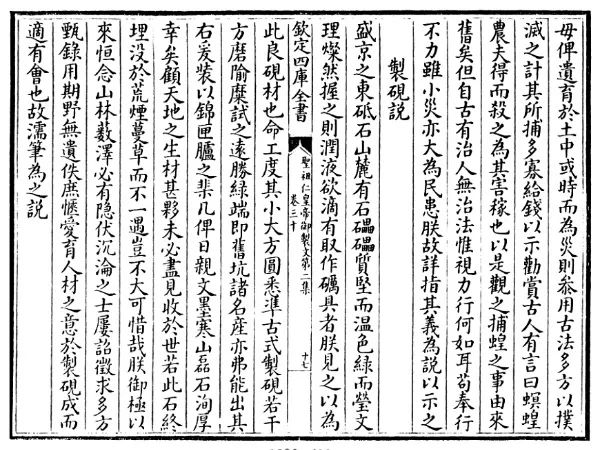 毋俾遺育於土中或時而為災則參用古法多方以撲
滅之計其所捕多寡給錢以示勸賞古人有言曰螟蝗
農夫得而殺之為其害稼也以是觀之捕蝗之事由來
舊矣但自古有治人無治法惟視力行何如耳苟奉行
不力雖小災亦大為民患朕故詳指其義為說以示之
製硯說
盛京之東砥石山麓有石礧礧質堅而溫色綠而瑩文
理燦然握之則潤液欲滴有取作礪具者朕見之以為
欽定四庫全書
聖祖仁皇帝御製文第二集
卷三十
十七
此良硯材也命工度其小大方圓悉準古式製硯若干
方磨隃糜試之遠勝綠端即舊坑諸名產亦弗能出其
右爰裝以錦匣臚之棐几俾日親文墨寒山磊石洵厚
幸矣顧天地之生材甚夥未必盡見收於世若此石終
埋没於荒煙蔓草而不一遇豈不大可惜哉朕御極以
來恒念山林藪澤必有隱伏沉淪之士屢詔徵求多方
甄錄用期野無遺佚庶愜愛育人材之意於製硯成而
適有會也故濡筆為之說